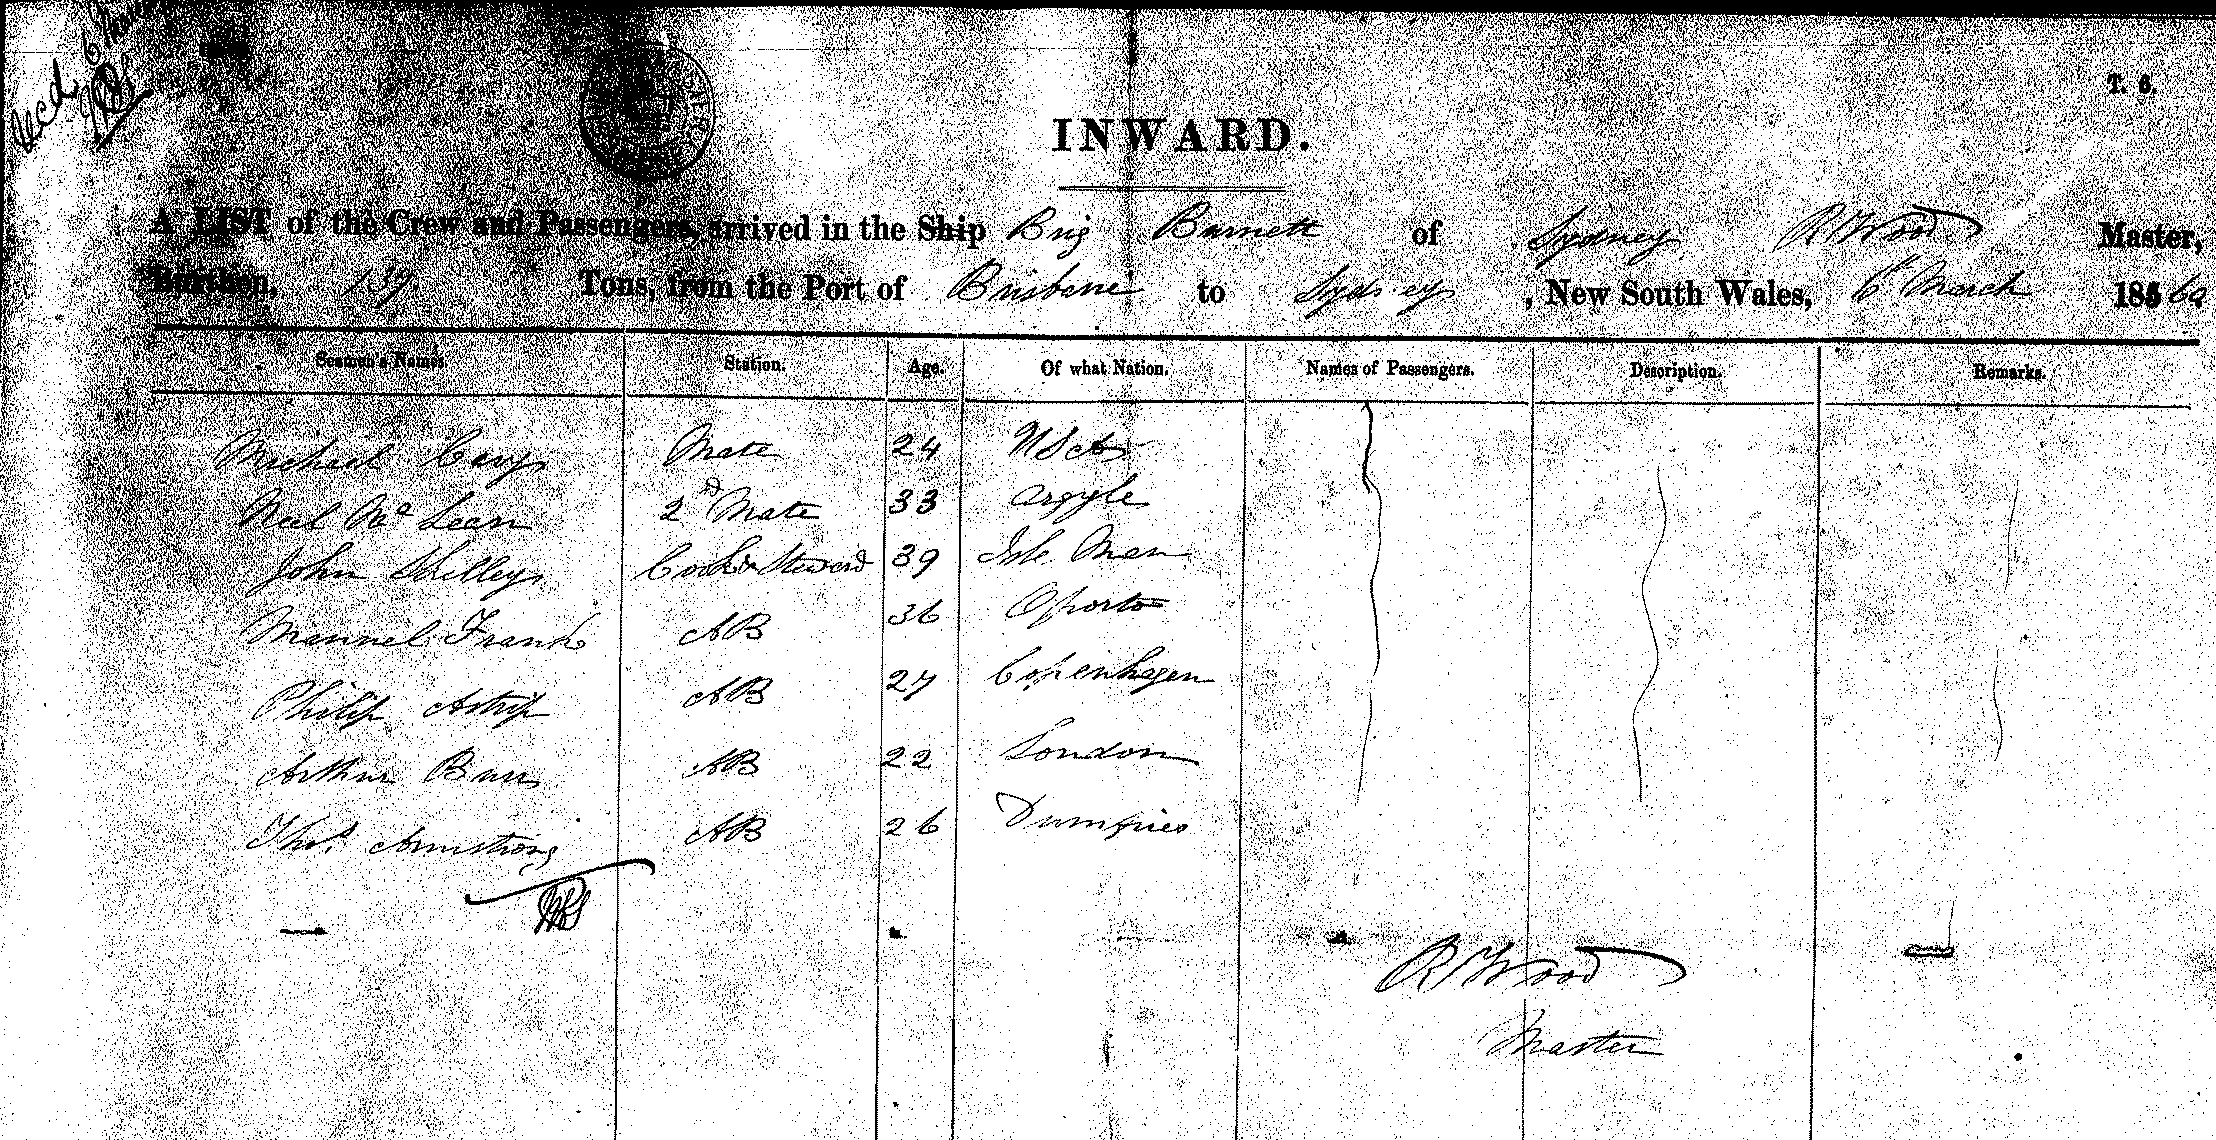 Recd 6 March
T. 6.
INWARD.
A LIST of the Crew and Passengers, arrived in the Ship Brig Burnett of Sydney R Wood Master,
Burthen, 139. Tons, from the Port of Brisbane to Sydney, New South Wales, 6 March 185 60
Seamen's Names. Station. Age. Of what Nation. Names of Passengers. Description. Remarks.
Michael Mate 24
Neil Mc Lean 2nd Mate 33 Argyle
John Skelley Cook & Steward 39 Isle Man
Manuel Frank AB 36 Oporto
Philip Astrip AB 27 Copenhagen
Arthur AB 22 London
Thos. Armstrong AB 26 Dumfries
R Wood
Master